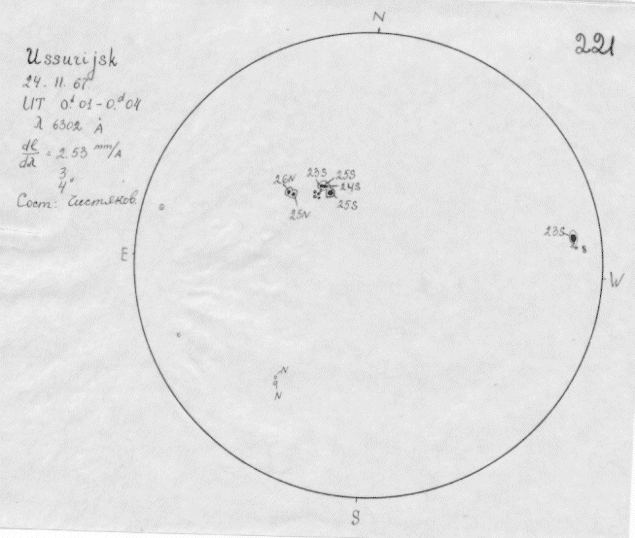 N
221
Ussurijsk
24. II. 67
UT 0.ᵈ01-0.ᵈ04
λ 6302 Å
dl/dλ = 2.53 mm/A
3
4"
Сост: Чистяков.
23S 25S
26N 24S
25N 25S
23S
8
E
W
N
N
S